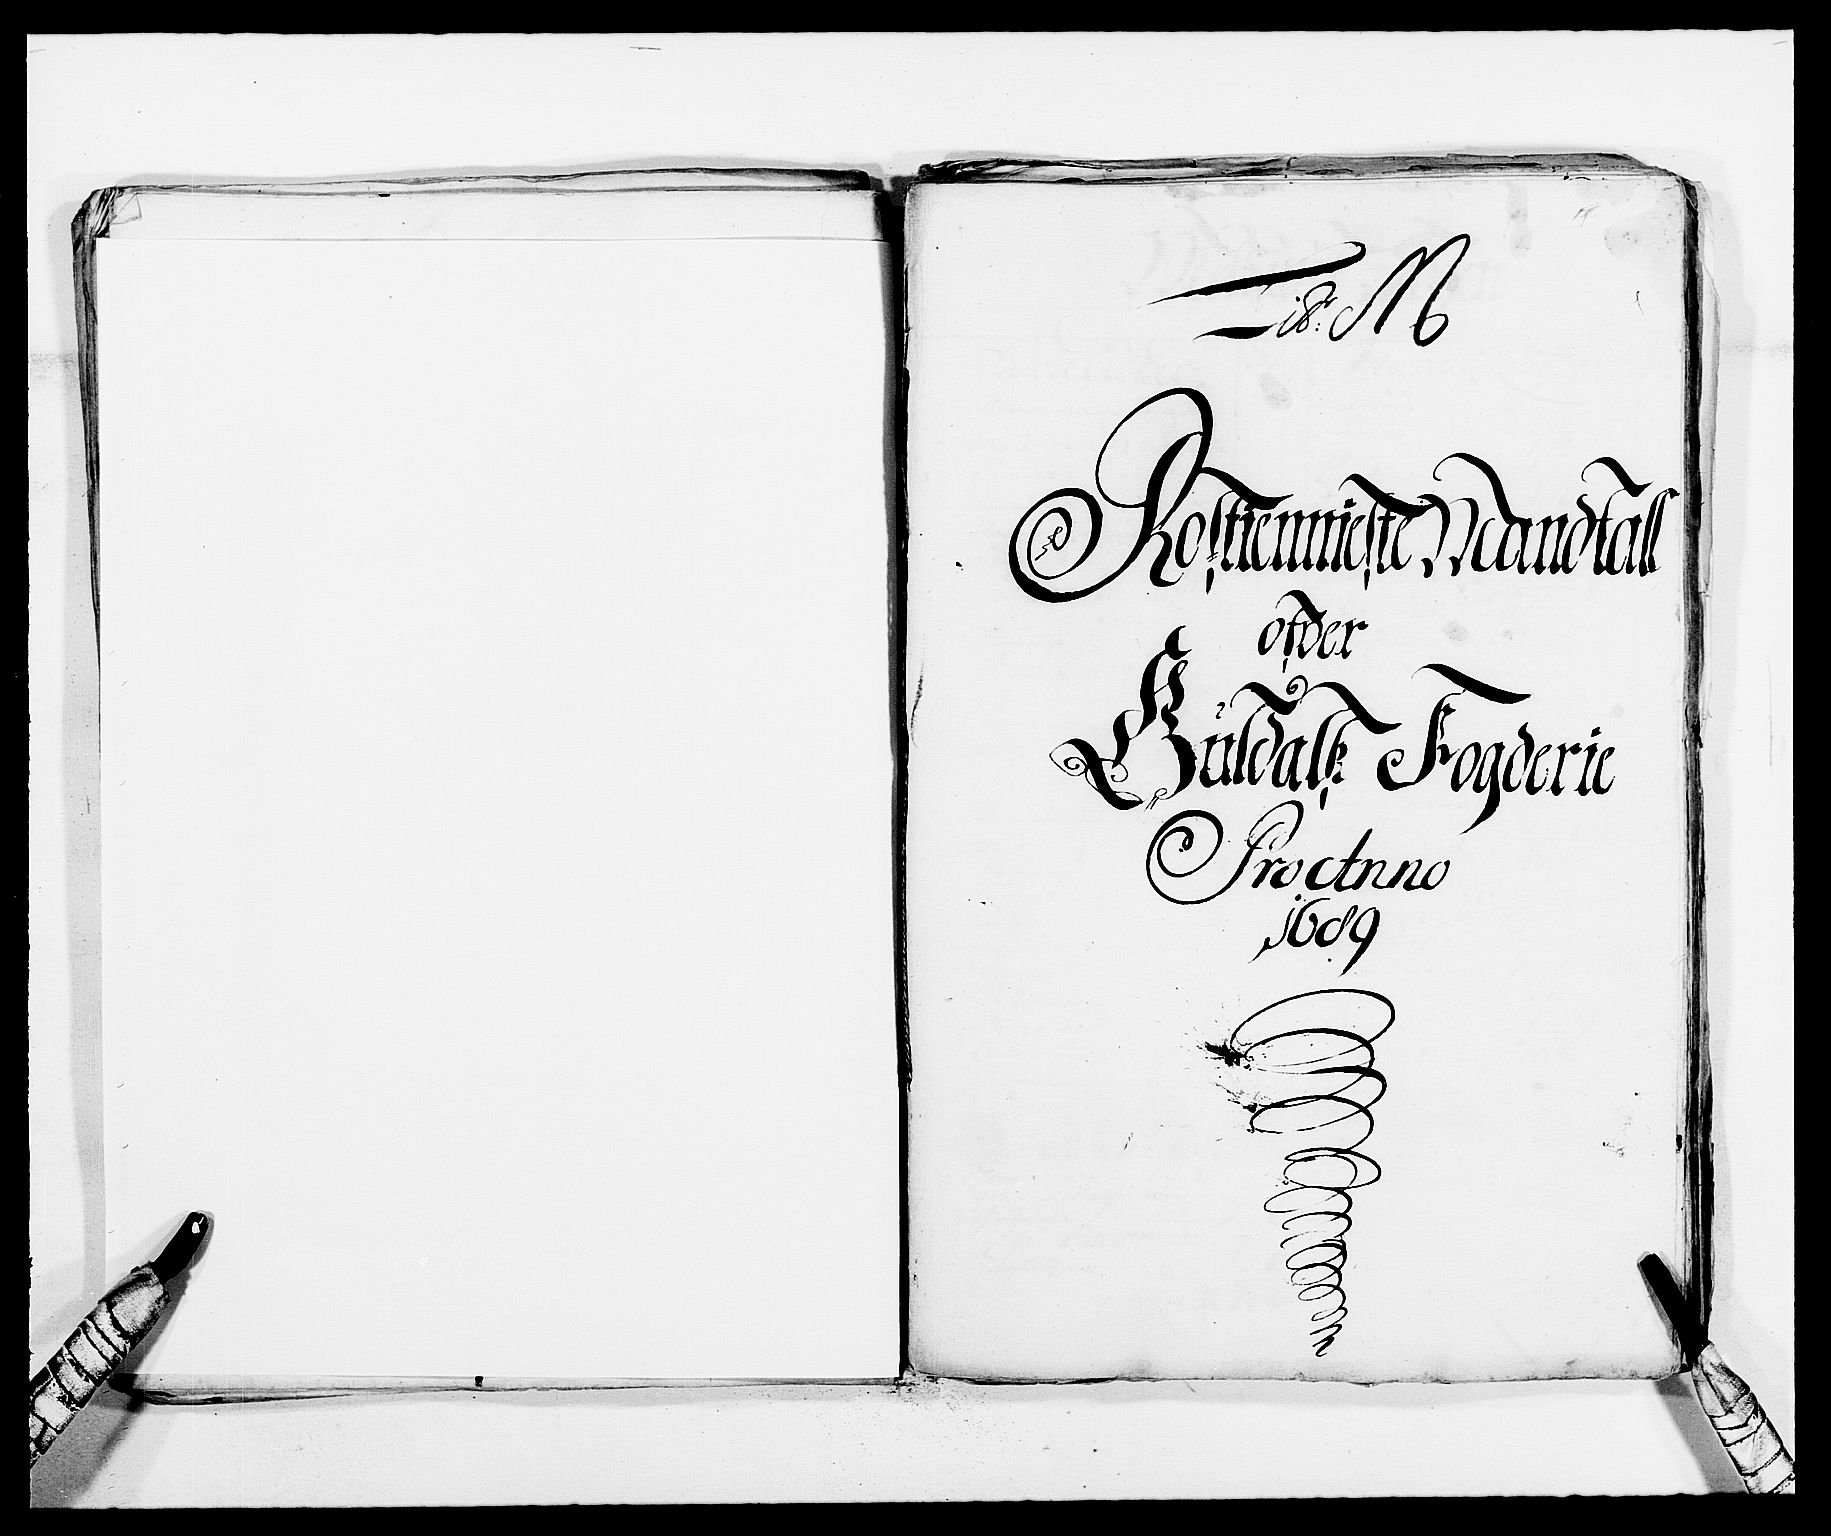 Lit: M
Rostienniste Mandtall
ofver
Guldals Fogderie
Pro Anno
1689